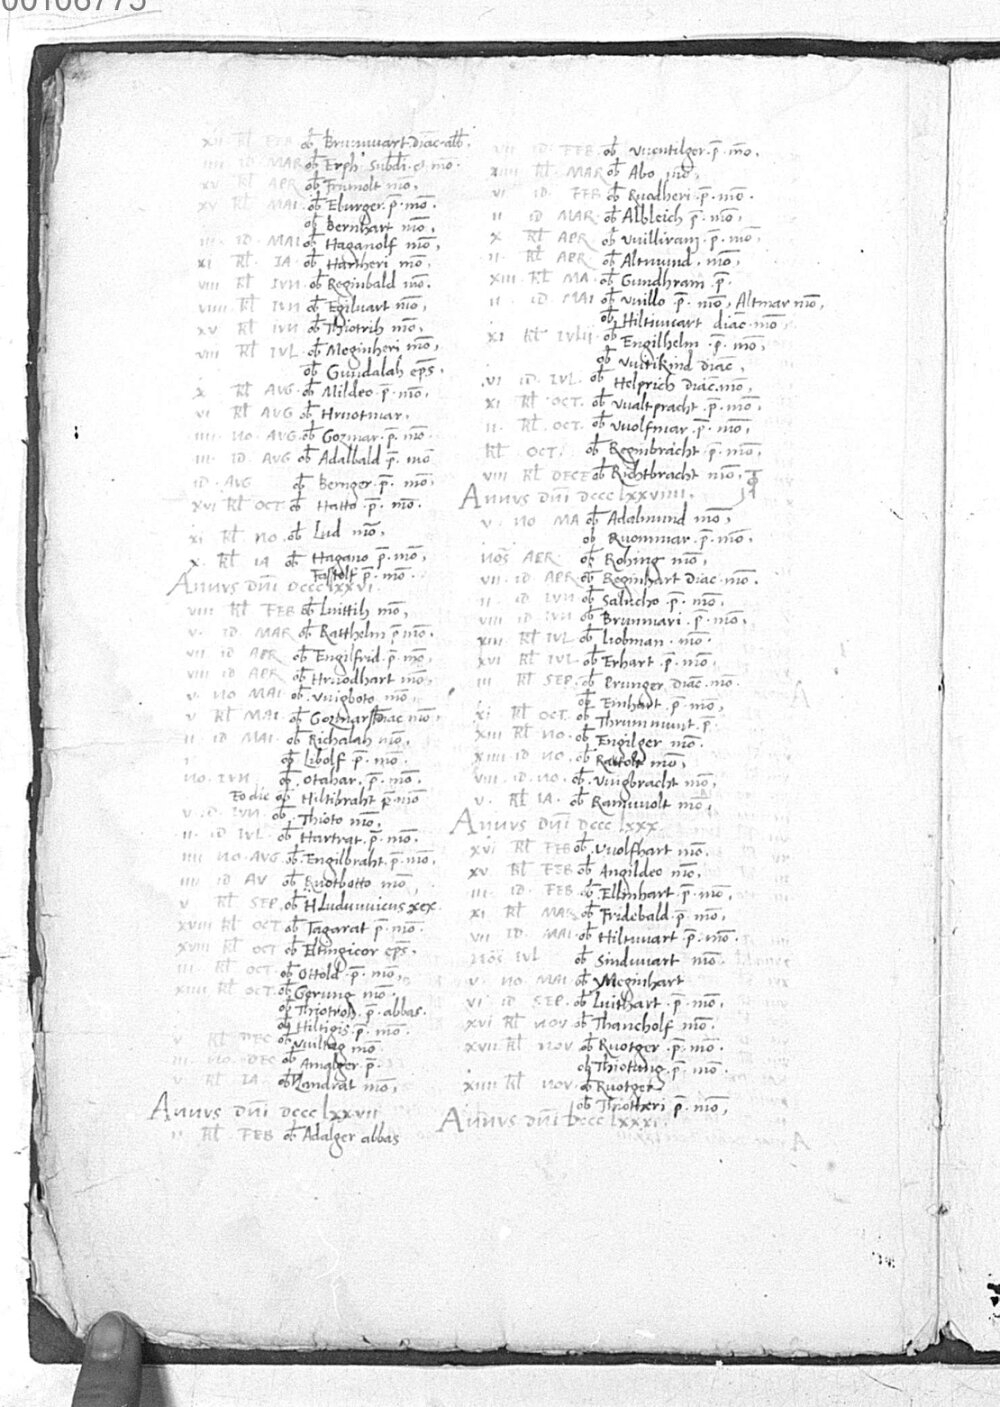 00108775
xii kł FEB ob Brunuuart diac abb.
iiii id MAR ob Erph subdi. et mō.
xv kł APR ob Frumolt mō.
xv kł MAI ob Eburger p̄ mō.
ob Bernhart mō.
iii ID MAI ob Haganolf mō.
xi kł IA ob Hartheri mō.
viii kł IVN ob Reginbald mō.
viiii kł IVN ob Egiluart mō.
xv kł IVN ob Thiotrih mō.
viii kł IVL ob Meginheri mō.
ob Gundalah ep̄s.
x kł AVG ob Mildeo p̄ mō.
vi kł AVG ob Hruotmar.
iiii no AVG ob Gozmar p̄ mō.
iii ID AVG ob Adalbald p̄ mō
id AVG ob Bernger p̄ mō.
xvi kł OCT ob Hatto p̄ mō.
xi kł no ob Lud mō.
x kł IA ob Hagano p̄ mō.
Fastolf p̄ mō.
Annus dn̄i dcccc lxxvi.
viii kł FEB ob Luittih mō.
v id MAR ob Ratthelm p̄ mō.
vii id APR ob Engilfrid p̄ mō.
viii id APR ob Hruodhart mō.
v no MAI ob Vuigboto mō.
v kł MAI ob Gozmar diac mō.
ii id MAI ob Richalah mō.
ob Libolf p̄ mō.
no. IVN ob Otahar p̄ mō.
Eo die ob Hiltibraht p̄ mō
v id IVN ob Thioto mō.
ii id IVL ob Hartrat p̄ mō.
iiii no AVG ob Engilbraht p̄ mō.
iiii id AV ob Ruotbotto mō.
v kł SEP ob Hluduuuicus rex.
xviii kł OCT ob Tagarat p̄ mō.
xviii kł OCT ob Eltingicor ep̄s.
iii kł OCT ob Ottold p̄ mō.
xiiii kł OCT ob Gerung mō.
ob Thiotroh p̄ abbas.
ob Hiltigis p̄ mō.
v kł DEC ob Vuiltag mō
iii no DEC ob Amalger p̄.
v kł IA ob Landrat mō.
Annus dn̄i dcccc lxxvii
ii kł FEB ob Adalger abbas
vii ID FEB ob Vuentilger p̄ mō.
xiiii kł MAR ob Abo mō.
vi id FEB ob Ruodheri p̄ mō.
ii id MAR ob Albleich p̄ mō.
x kł APR ob Vuilliram p̄ mō.
ii kł APR ob Altmund mō.
xiii kł MA ob Gundhram p̄.
ii id MAI ob Vuillo p̄ mō, Altmar mō.
ob Hiltuuart diac mō.
xi kł IVLII ob Engilhelm p̄ mō.
ob Vuitikind diac.
vi id IVL ob Helprich diac mō.
xi kł OCT. ob Vualtpracht p̄ mō.
ii kł OCT. ob Vuolfmar p̄ mō.
kł OCT. ob Reginbracht p̄ mō.
viii kł DECE ob Richtbracht mō.
Annus dn̄i dcccc lxxviiii.
v no MA ob Adalmund mō.
ob Ruommar p̄ mō.
nos APR ob Rohing mō.
vii id APR ob Reginhart diac mō.
ii id IVN ob Salucho p̄ mō.
viii id IVN ob Brunmari p̄ mō.
xiii kł IVL ob Liobman mō.
xvi kł IVL ob Erhart p̄ mō.
iii kł SEP ob Prunger diac mō.
ob Einhart p̄ mō.
xi kł OCT ob Thrummunt p̄.
xiii kł NO. ob Engilger mō.
xiiii id NO. ob Rattolt mō.
viii id NO. ob Vuigbracht mō.
v kł IA ob Ramuuolt mō.
Annus dn̄i dcccc lxxx
xvi kł FEB ob Vuolfhart mō.
xv kł FEB ob Angildeo mō.
iii id FEB ob Ellinhart p̄ mō.
xi kł MAR ob Fridebald p̄ mō.
vii ID MAI ob Hiltuuart p̄ mō.
nos IVL ob Sinduuart mō.
v no MAI ob Meginhart
vi id SEP ob Luithart p̄ mō.
xvi kł NOV ob Thancholf mō.
xvii kł NOV ob Ruotger p̄ mō.
ob Thiotung p̄ mō.
xiiii kł NOV ob Ruotger
ob Thiotheri p̄ mō.
Annus dn̄i dcccc lxxxi.